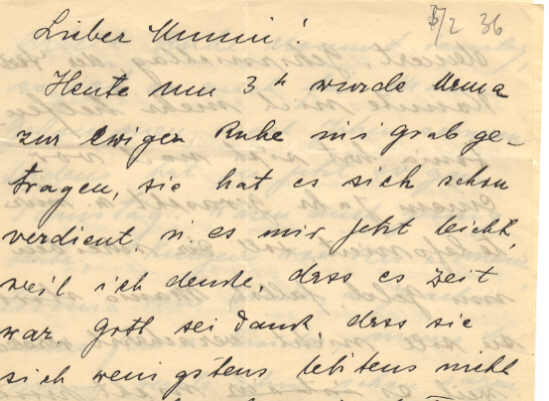 5/2 36
Lieber Munni!
Heute um 3 h wurde Oma
zur ewigen Ruhe ins Grab ge-
tragen, sie hat es sich schon
verdient, u. es mir jetzt leicht,
weil ich denke, dass es Zeit
war Gott sei Dank, dass sie
sich wenigstens letztens nicht